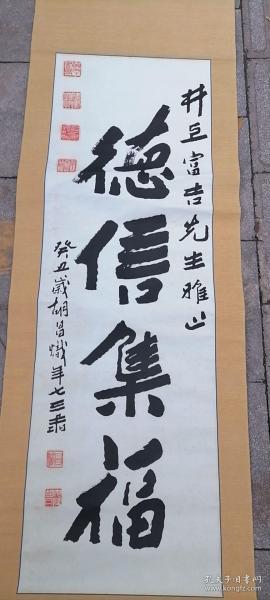 井亘富吉先生雅正
德信集福
癸丑歲胡昌熾年七三
孔夫子旧书网